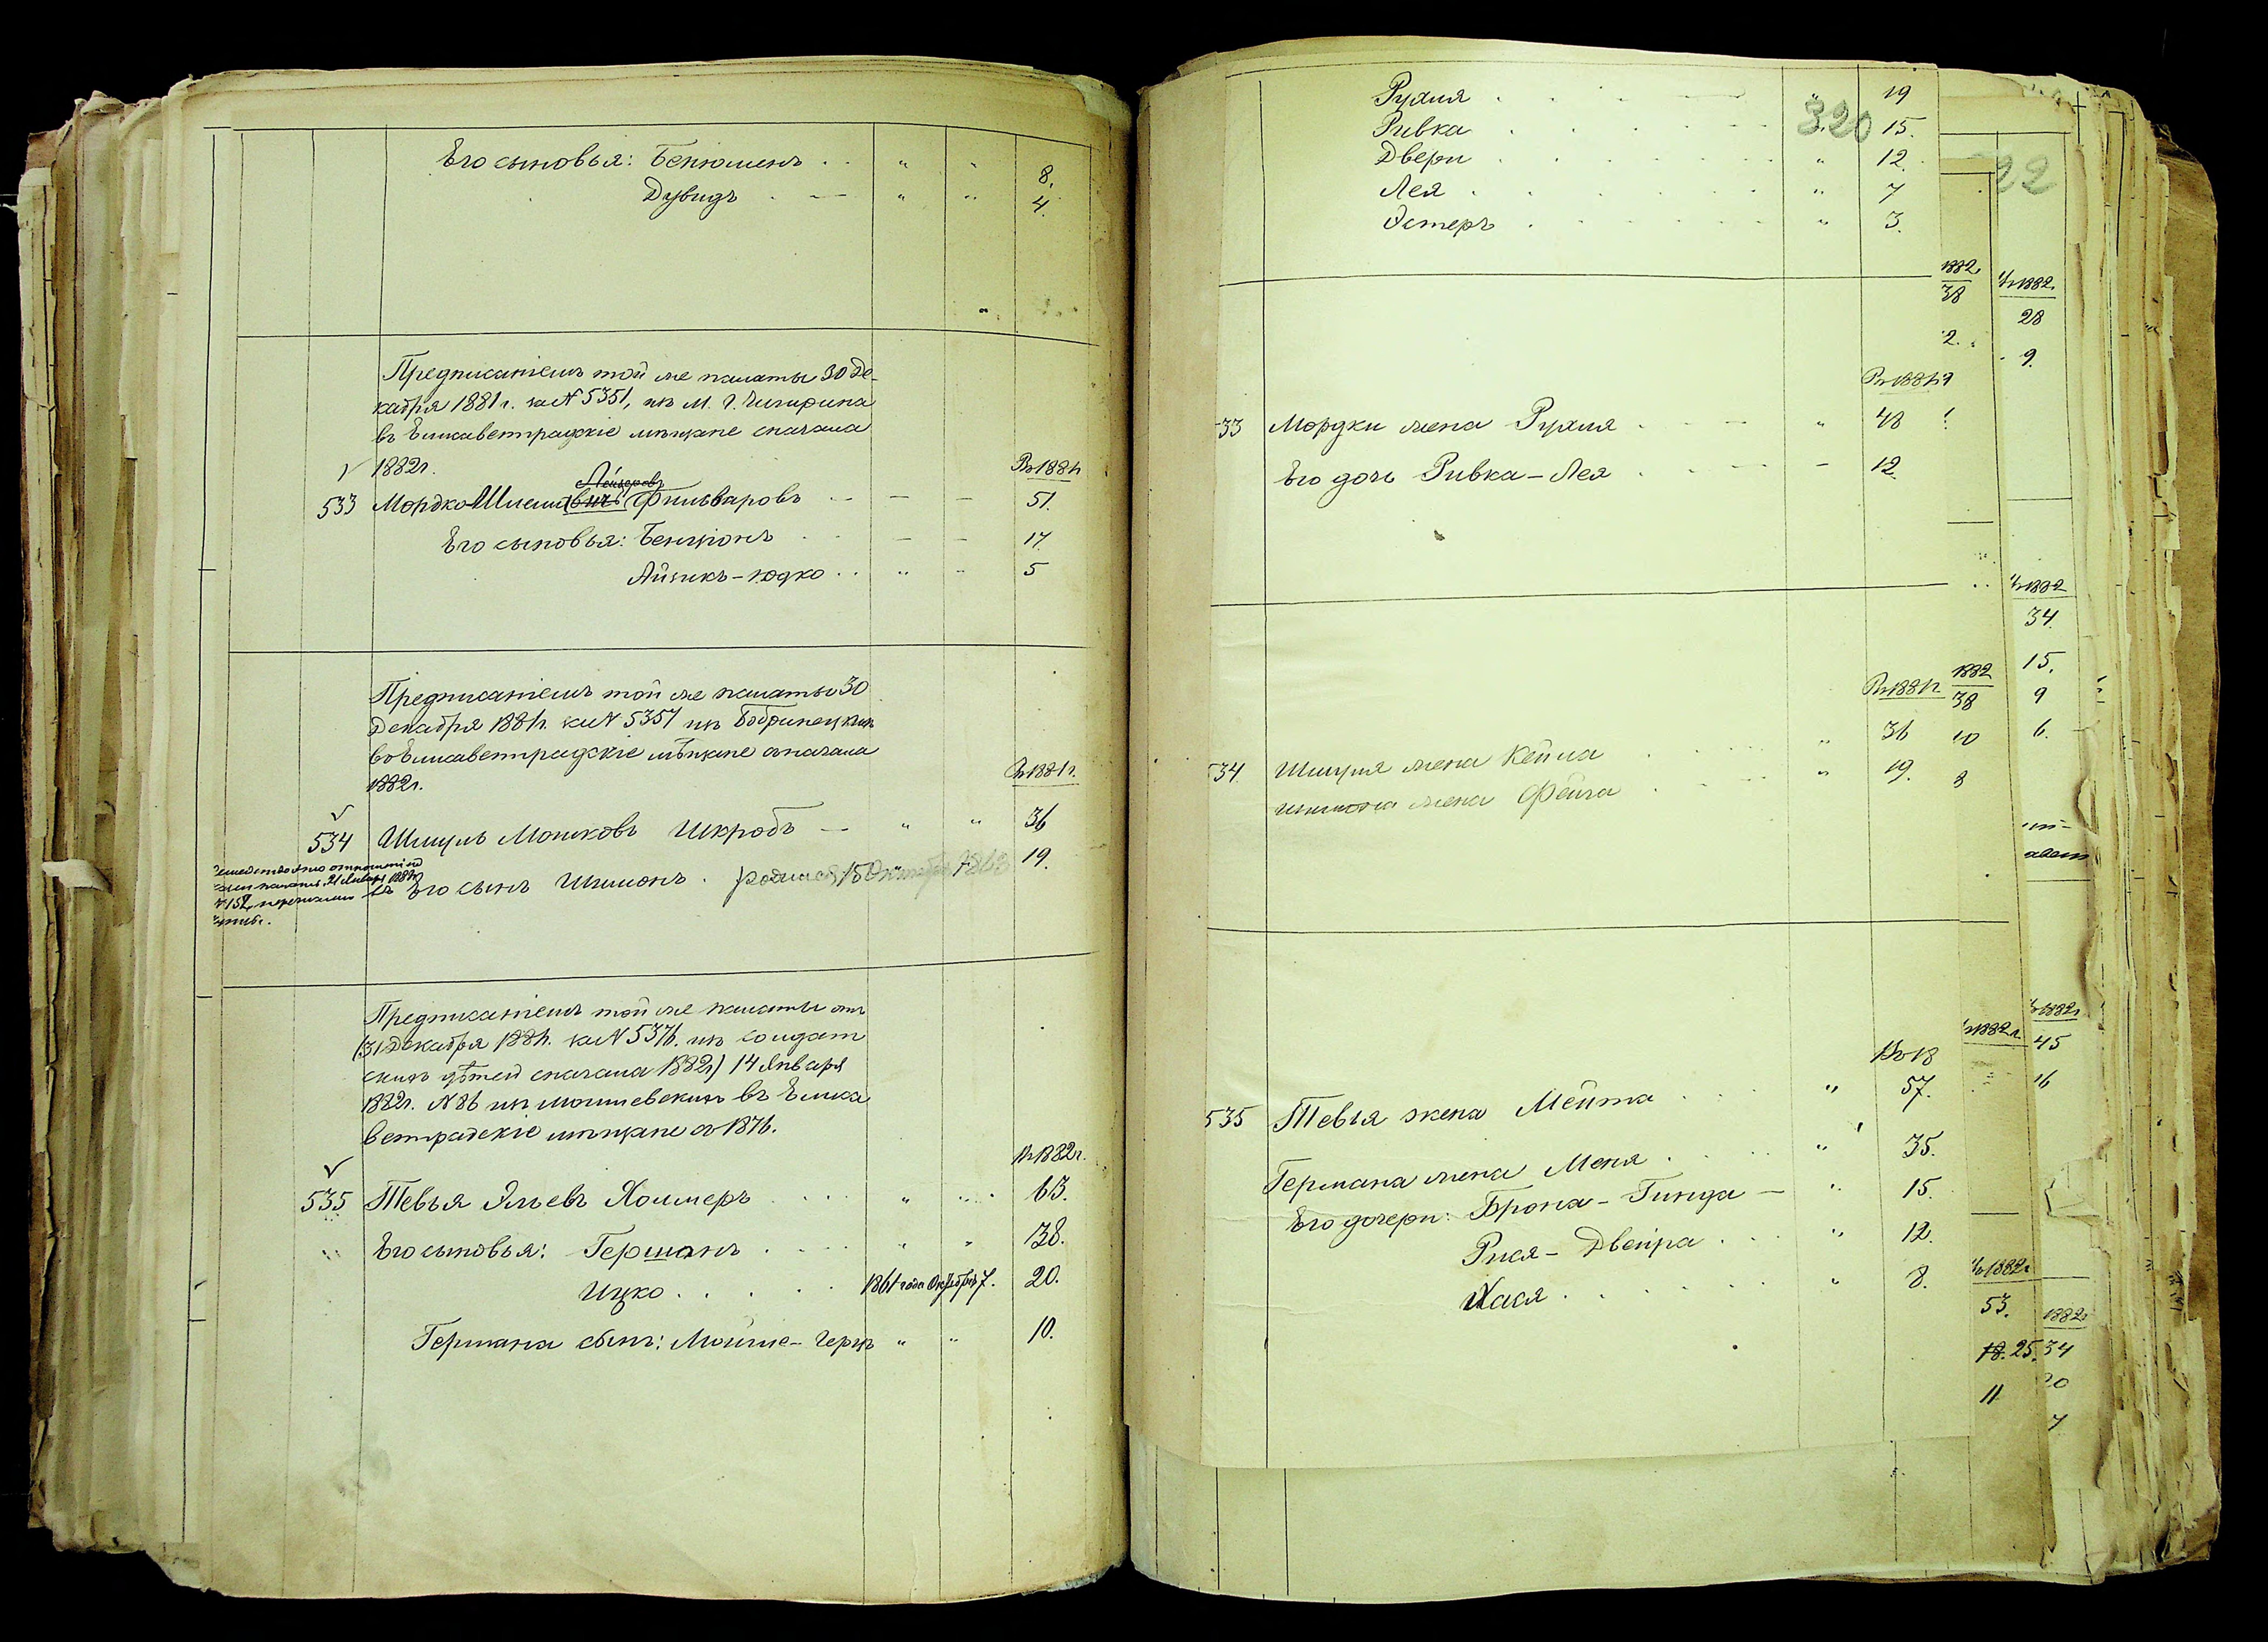 Его сыновья: Бенюменъ . . " " 8.
Дувидъ . — " " 4.
Предписаніемъ той же палаты 30 Де-
кабря 1881 г. за № 5351, изъ М. г. Чигирина
въ Елисаветградскіе мѣщане сначала
1882 г.
Въ 1881 г.
Лейзеровъ
533 Мордко Шлемовичъ Фильваровъ — — — 51.
Его сыновья: Бенціонъ . . — — 17
Айзикъ-Юдко . . " " 5
Предписаніемъ той же палаты 30
Декабря 1881 г. за № 5357 изъ Бобринецкихъ
въ Елисаветградскіе мѣщане сначала
1882 г.
Въ 1881 г.
534 Шмуль Мошковъ Шкробъ — " " 36
Его сынъ Шимонъ . родился 15 Октября 1862 19.
палаты 21 Января 188
№ 152, перечислен
Предписаніемъ той же палаты отъ
(31 Декабря 1881 г. за № 5376. изъ солдат
скихъ дѣтей сначала 1882 г) 14 Января
1882 г. № 86 изъ могилевскихъ въ Елиса
ветградскіе мѣщане съ 1876.
Въ 1882 г.
535 Тевья Эльевъ Холмеръ . . . " " 63.
Его сыновья: Германъ . . . " " 38.
Ицко . . . . . 1861 года Октября 7. 20.
Германа сынъ: Мойше-Герцъ " " 10.
320
Рухля . . . — " 19
Ривка . . . . . — 15.
Двери . . . . . " 12.
Лея . . . . . " 7
Эстеръ . . . . . " 3.
Въ 1881 г
33 Мордки жена Рухля . . — " 48
Его дочь Ривка-Лея . . . — — 12.
Въ 1881 г
34. Шмуля жена Кейла . . . " 36
Шимона жена Фейга . . . " 19.
Въ 18
535 Тевья жена Мейта . . . " 57.
Германа жена Меня . . . " 35.
Его дочери: Брона-Гинда — " 15.
Рися-Двейра . . . " 12.
Хася . . . . . " 8.
22
1882.
38
2.
1882.
28
9.
1882
34.
15.
9
6.
1882
38
10
8
1882 г.
1882 г
45
16
1882 г
53.
18. 25.
11
1882
34
20
7